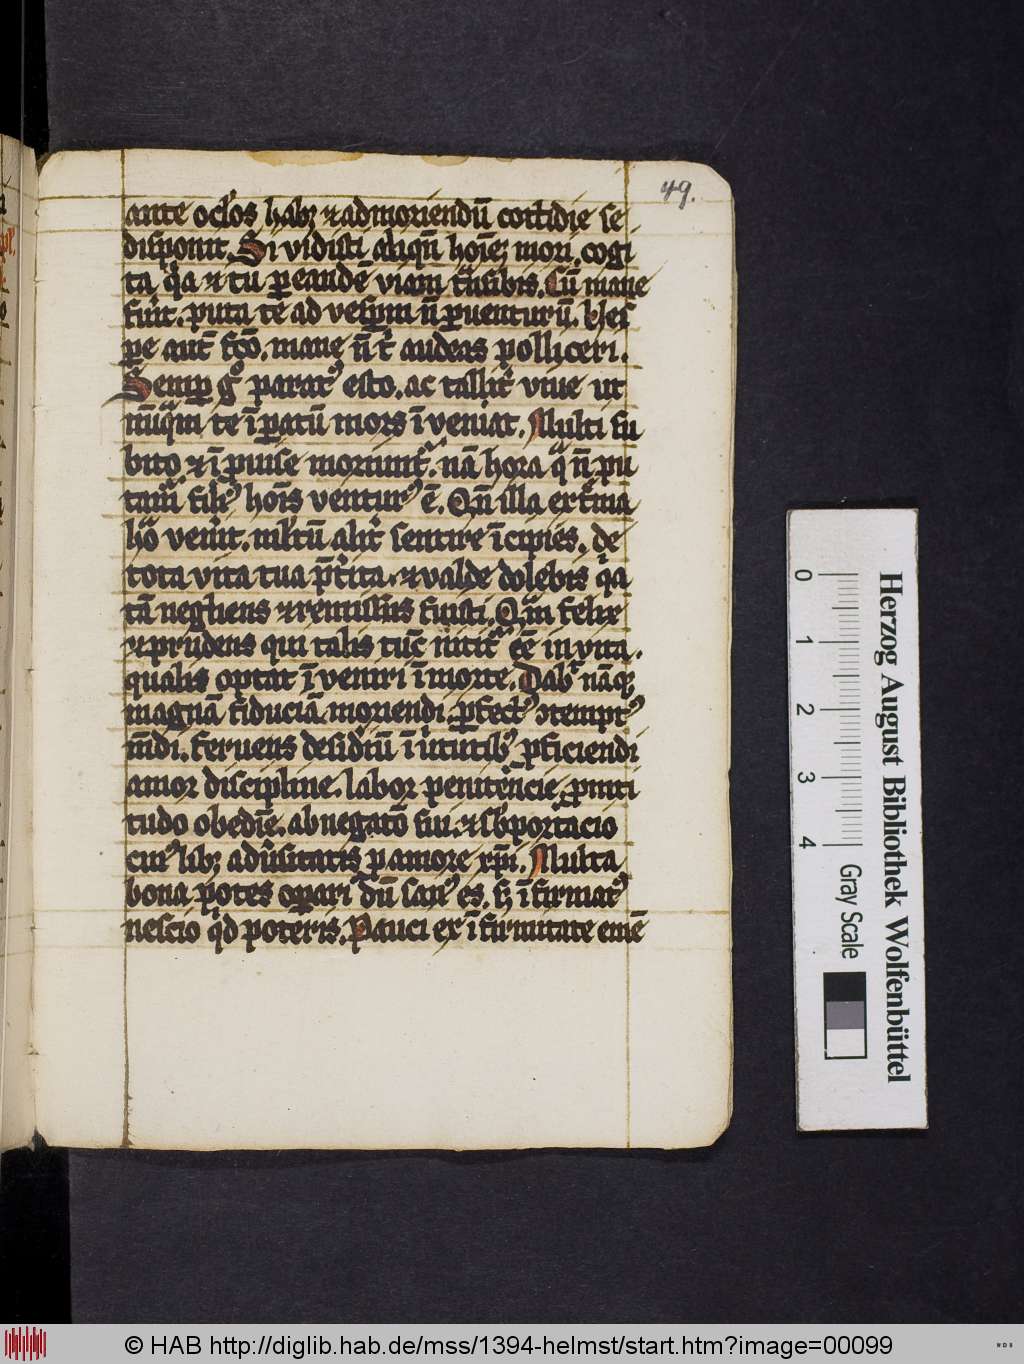 49.
ante oclōs habꝫ ⁊ admoriendū cottidie se
disponit. Si vidisti aliqn̄ hoīeꝫ mori. cogi
ta qͥa ⁊ tu ꝑ eandē viam tͣnsibis. Cū mane
fuīt. puta te ad vesꝑm nō ꝑuenturū. Ues
ꝑe aut̄ fc̄o. mane n̄ tͥ audeas polliceri.
Semꝑ gͦ paratꝰ esto. ac talit̓ viue ut
nūqͣm te īparatū mors īveniat. Multi su
bito ⁊ īprouise moriunt᷑. nā hora qͣ n̄ pu
tatur filiꝰ hoīs venturꝰ ē. Qn̄ illa extͤma
hoͣ venit. multū alit̓ sentire īcipies. de
tota vita tua p̄t̓ita. ⁊ valde dolebis qͥa
tā negliens ⁊ remissus fuisti. Qͣm felix
⁊ prudens qui talis tūc nitit᷑ eē in vita.
qualis optat īveniri ī morte. Dabͥt nāqꝫ
magnā fiduciā moriendi. ꝑfectꝰ ꝯtemptꝰ
mūdi. feruens desid̓iū ī v̓tutibꝰ ꝓficiendi
amor discipline. labor penitencie. ꝓmti
tudo obediē̄. abnegatō sui. ⁊ sb̄portacio
cuiꝰlibꝫ adūsitatis ꝓ amore xp̄i. Multa
bona potes oꝑari dū sanꝰ es. sꝫ īfirmatꝰ
nescio qͥd poteris. Pauci ex īfirmitate emē
0 1 2 3 4
Gray Scale
Herzog August Bibliothek Wolfenbüttel
© HAB http://diglib.hab.de/mss/1394-helmst/start.htm?image=00099